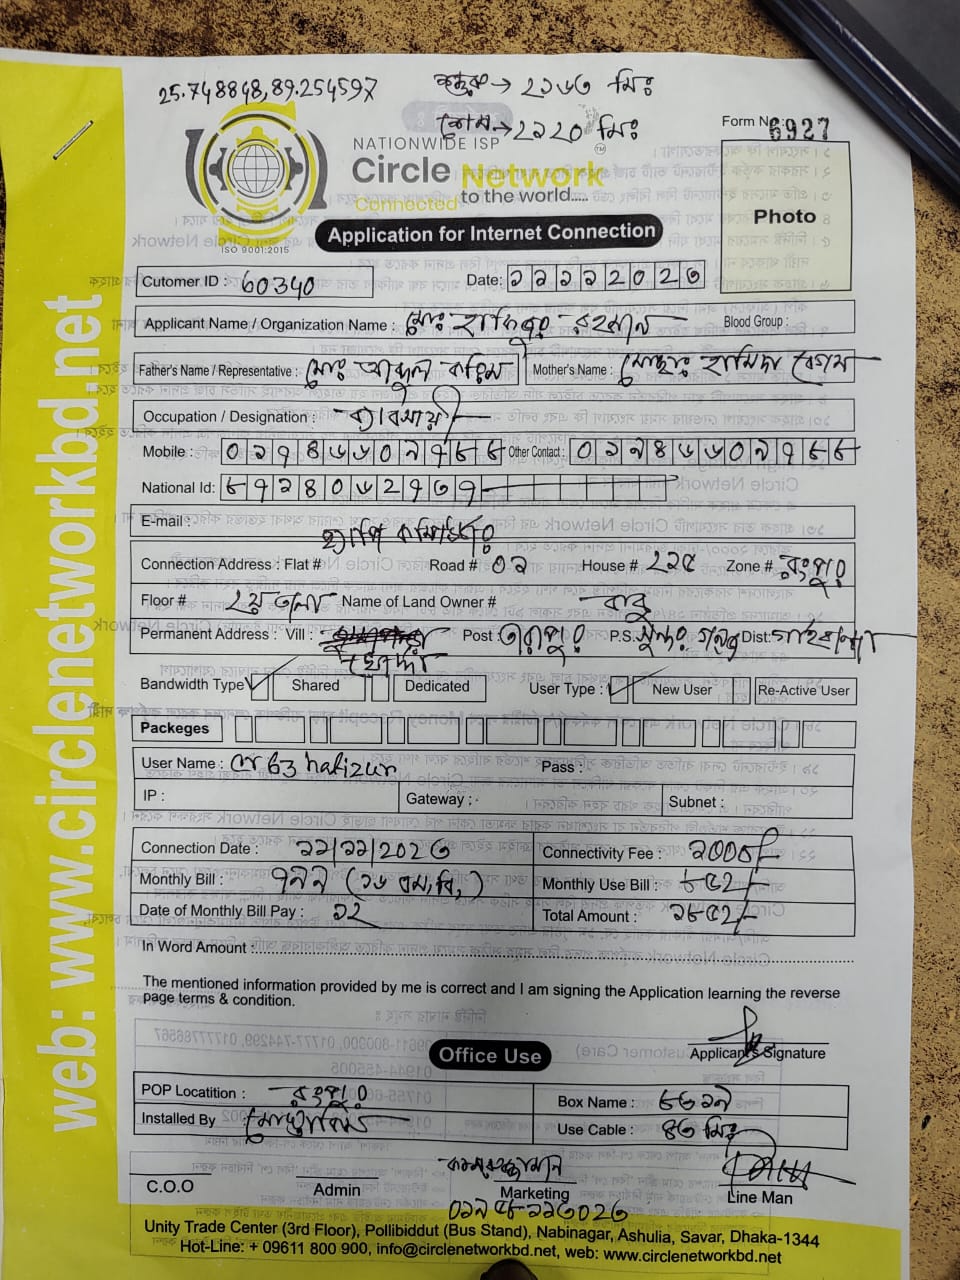 25.748848, 89.254597
শুরু → ২১৬৩ মিঃ
শেষ → ২১২০ মিঃ
Form No: 6927
NATIONWIDE ISP
Circle Network
Connected to the world.....
ISO 9001:2015
Photo
Application for Internet Connection
Cutomer ID : 60340
Date: ২২১১২০২৩
Applicant Name / Organization Name : মোঃ হাফিজুর রহমান
Blood Group :
Father's Name / Representative : মোঃ আব্দুল
Mother's Name : মোছাঃ হামিদা বেগম
Occupation / Designation : ব্যবসায়ী
Mobile : ০১৭৪৬৬০৯৭৮৮
Other Contact : ০১৯৪৬৬০৯৭৮৮
National Id: ৮৭২৪০৬২৭৩৭
E-mail :
Connection Address : Flat #
Road # ০১
House # ২১৫
Zone # রংপুর
Floor # ২য় তলা
Name of Land Owner # বাবু
Permanent Address : Vill :
Post : তারাপুর
P.S. সুন্দরগঞ্জ
Dist: গাইবান্ধা
Bandwidth Type
Shared
Dedicated
User Type :
New User
Re-Active User
Packeges
User Name : hafizur
Pass :
IP :
Gateway :
Subnet :
Connection Date : ২২/১১/২০২৩
Connectivity Fee : ১০০০/-
Monthly Bill : ৭৯৯ (১৬ এম,বি,)
Monthly Use Bill : ৮৫২/-
Date of Monthly Bill Pay : ১২
Total Amount : ১৮৫২/-
In Word Amount :
The mentioned information provided by me is correct and I am signing the Application learning the reverse
page terms & condition.
Applicant's Signature
Office Use
POP Locatition : রংপুর
Box Name : ৮৬১৯
Installed By
Use Cable : ৪৩ মিঃ
কামরুজ্জামান
C.O.O
Admin
Marketing
Line Man
Unity Trade Center (3rd Floor), Pollibiddut (Bus Stand), Nabinagar, Ashulia, Savar, Dhaka-1344
Hot-Line: + 09611 800 900, info@circlenetworkbd.net, web: www.circlenetworkbd.net
web: www.circlenetworkbd.net